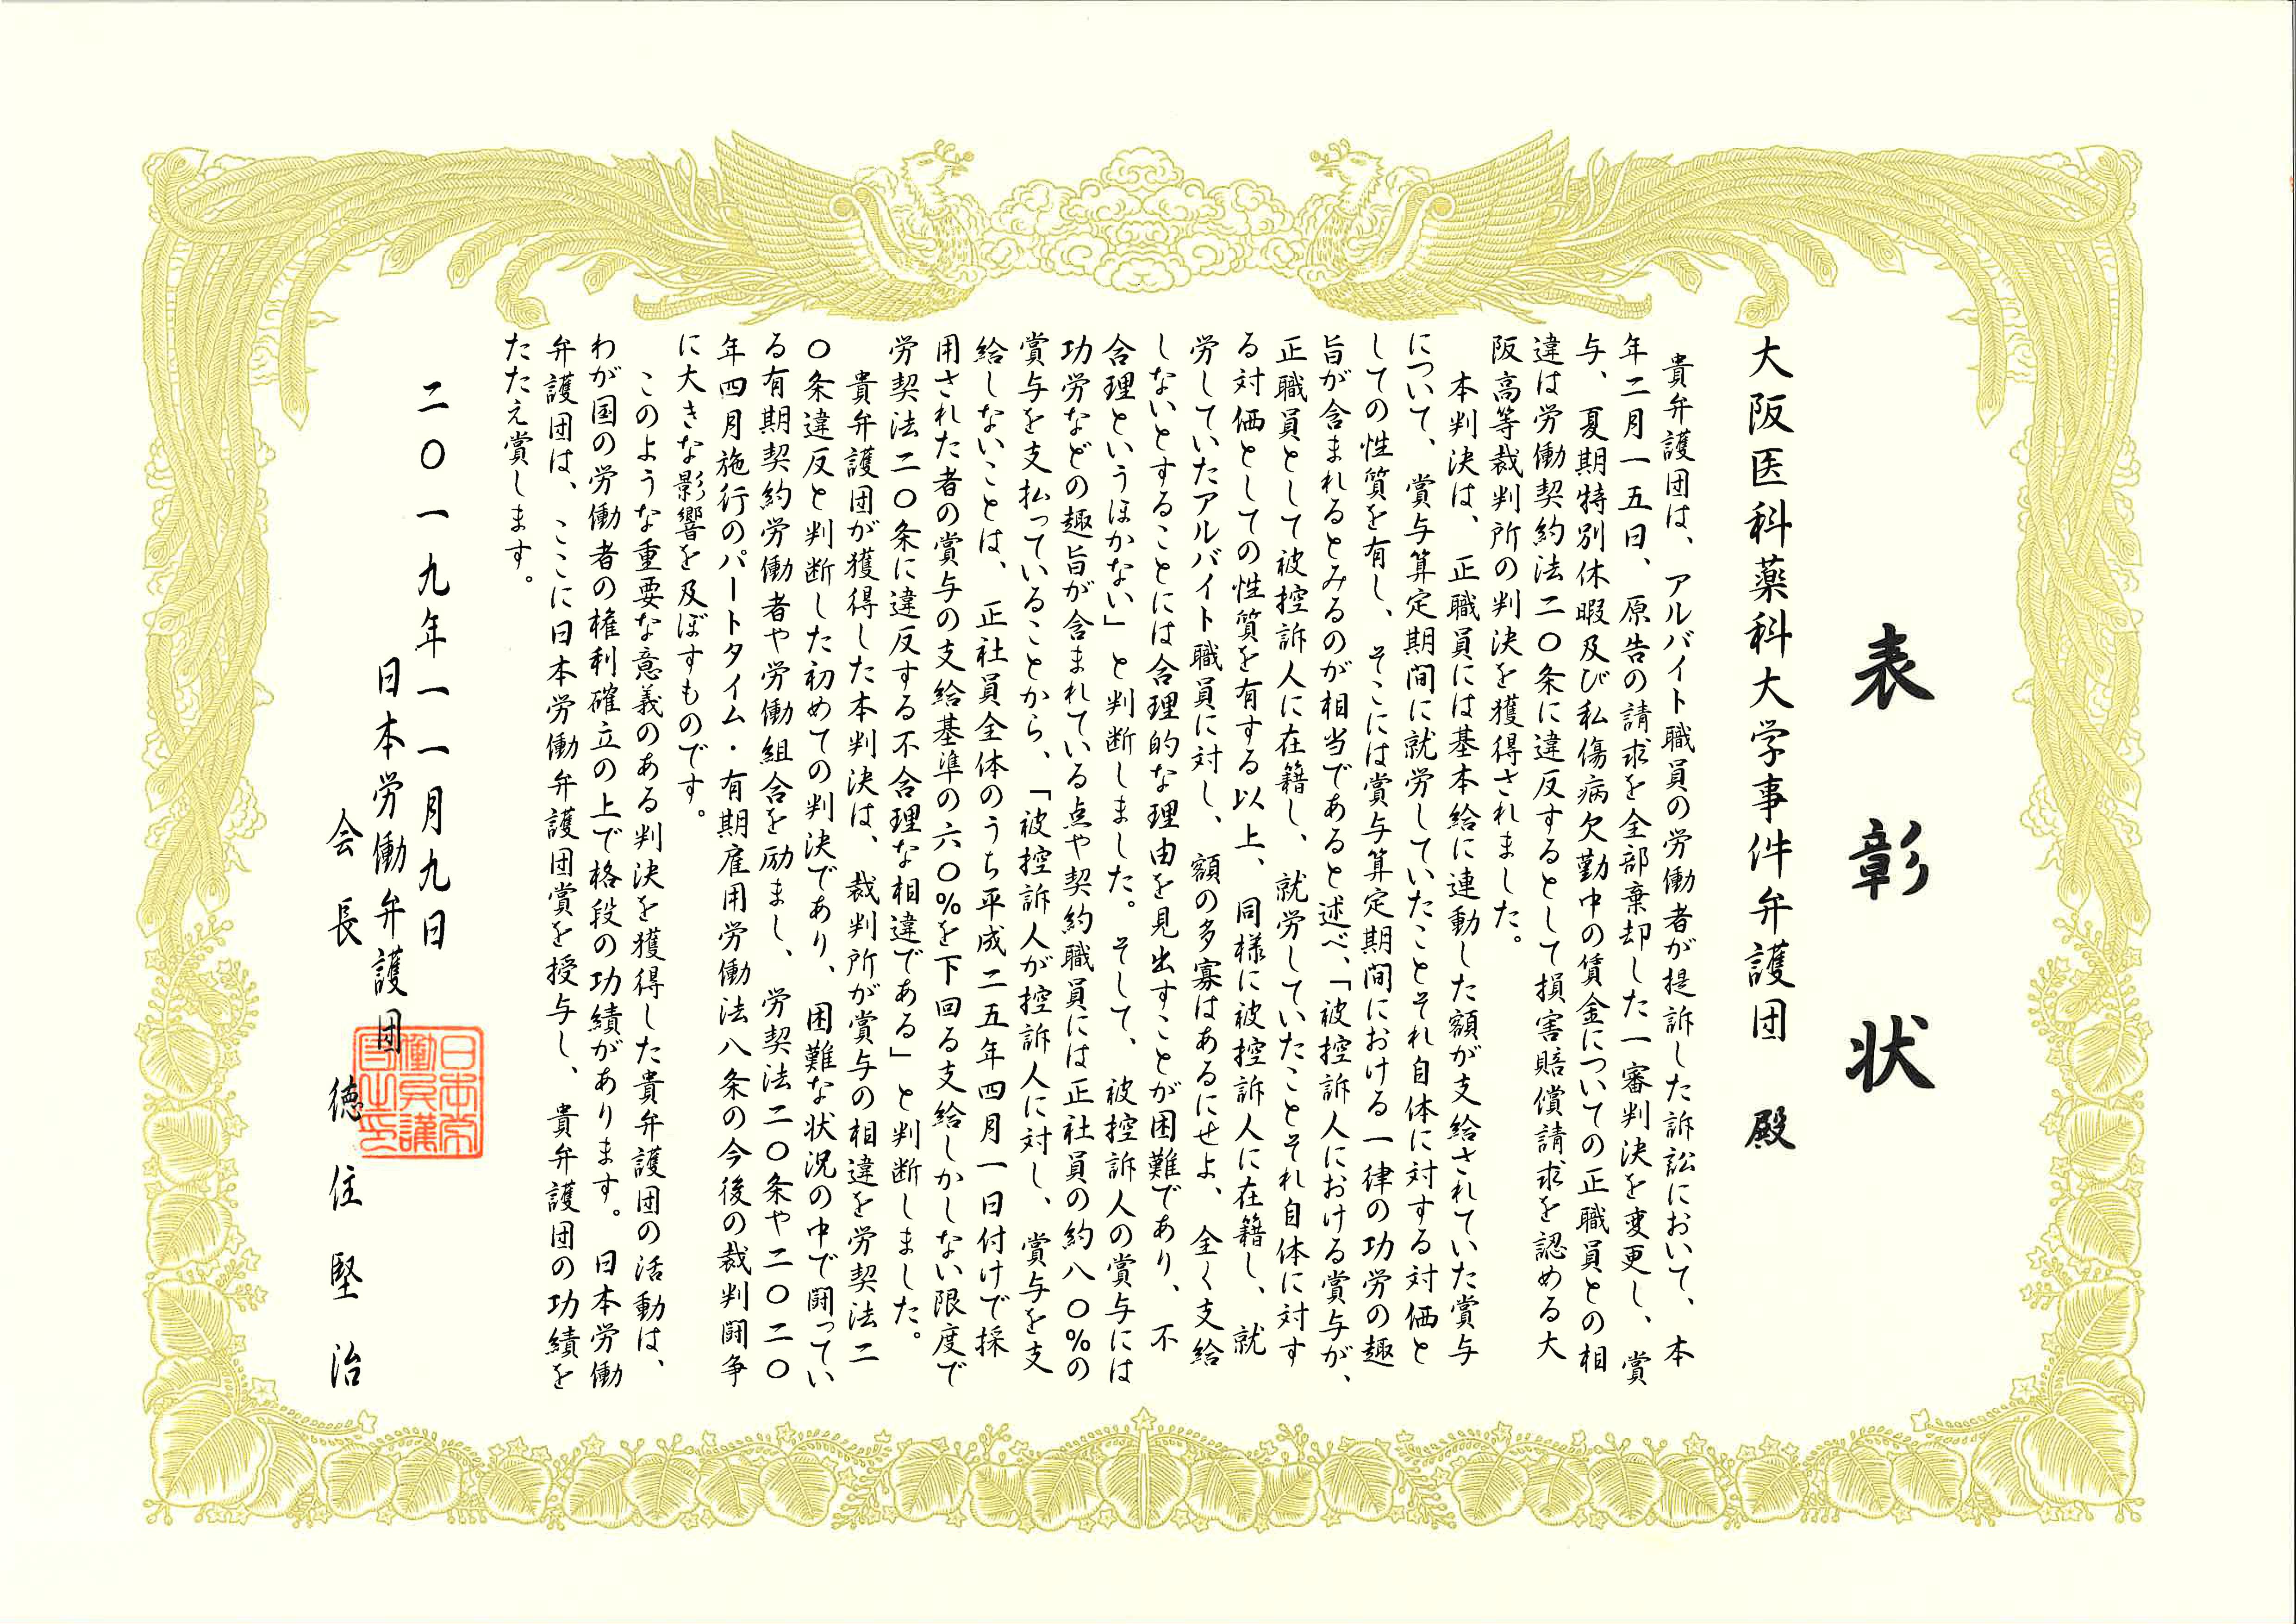 表彰状
大阪医科薬科大学事件弁護団 殿
貴弁護団は、アルバイト職員の労働者が提訴した訴訟において、本
年二月一五日、原告の請求を全部棄却した一審判決を変更し、賞
与、夏期特別休暇及び私傷病欠勤中の賃金についての正職員との相
違は労働契約法二〇条に違反するとして損害賠償請求を認める大
阪高等裁判所の判決を獲得されました。
本判決は、正職員には基本給に連動した額が支給されていた賞与
について、賞与算定期間に就労していたことそれ自体に対する対価と
しての性質を有し、そこには賞与算定期間における一律の功労の趣
旨が含まれるとみるのが相当であると述べ、「被控訴人における賞与が、
正職員として被控訴人に在籍し、就労していたことそれ自体に対す
る対価としての性質を有する以上、同様に被控訴人に在籍し、就
労していたアルバイト職員に対し、額の多寡はあるにせよ、全く支給
しないとすることには合理的な理由を見出すことが困難であり、不
合理というほかない」と判断しました。そして、被控訴人の賞与には
功労などの趣旨が含まれている点や契約職員には正社員の約八〇%の
賞与を支払っていることから、「被控訴人が控訴人に対し、賞与を支
給しないことは、正社員全体のうち平成二五年四月一日付けで採
用された者の賞与の支給基準の六〇%を下回る支給しかしない限度で
労契法二〇条に違反する不合理な相違である」と判断しました。
貴弁護団が獲得した本判決は、裁判所が賞与の相違を労契法二
〇条違反と判断した初めての判決であり、困難な状況の中で闘ってい
る有期契約労働者や労働組合を励まし、労契法二〇条や二〇二〇
年四月施行のパートタイム・有期雇用労働法八条の今後の裁判闘争
に大きな影響を及ぼすものです。
このような重要な意義のある判決を獲得した貴弁護団の活動は、
わが国の労働者の権利確立の上で格段の功績があります。日本労働
弁護団は、ここに日本労働弁護団賞を授与し、貴弁護団の功績を
たたえ賞します。
二〇一九年一一月九日
日本労働弁護団
会長 徳住堅治